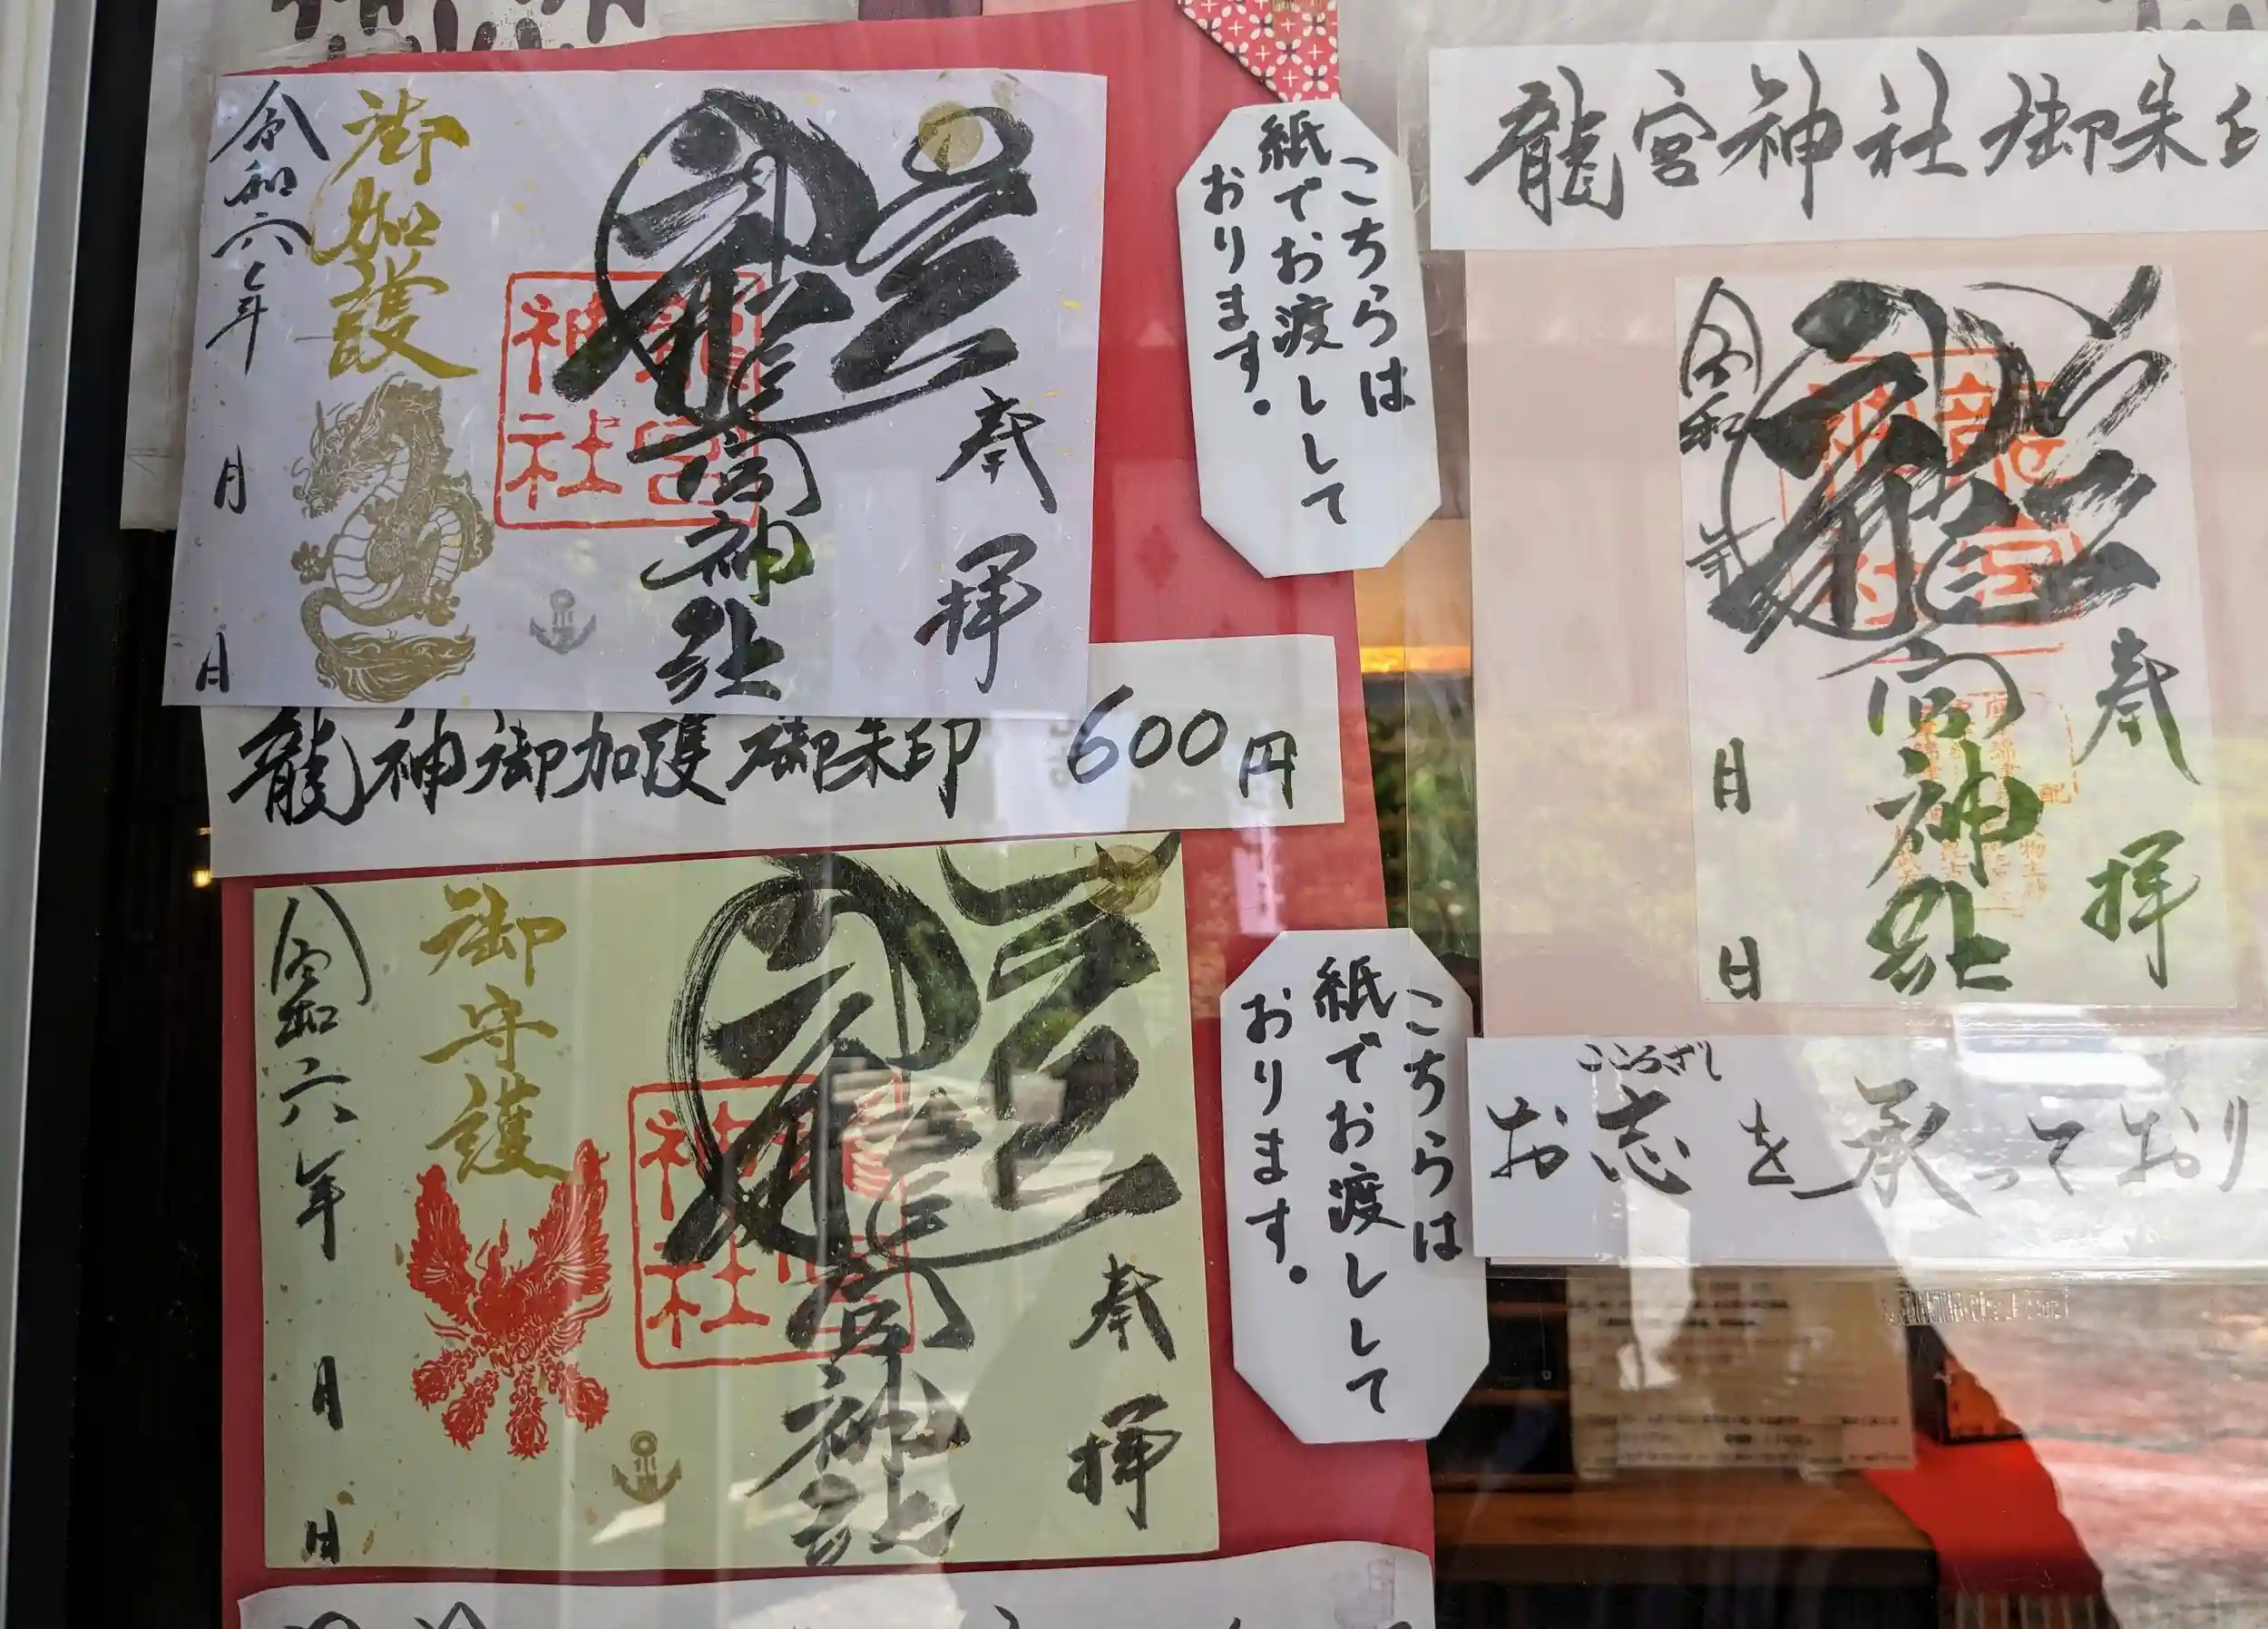 奉拝
龍宮神社
龍宮神社
御加護
令和六年
月
日
龍神御加護御朱印 600円
こちらは
紙でお渡しして
おります。
奉拝
龍宮神社
龍宮神社
御守護
令和六年
月
日
こちらは
紙でお渡しして
おります。
龍宮神社御朱印
奉拝
龍宮神社
令和
年
月
日
こころざし
お志を承っており